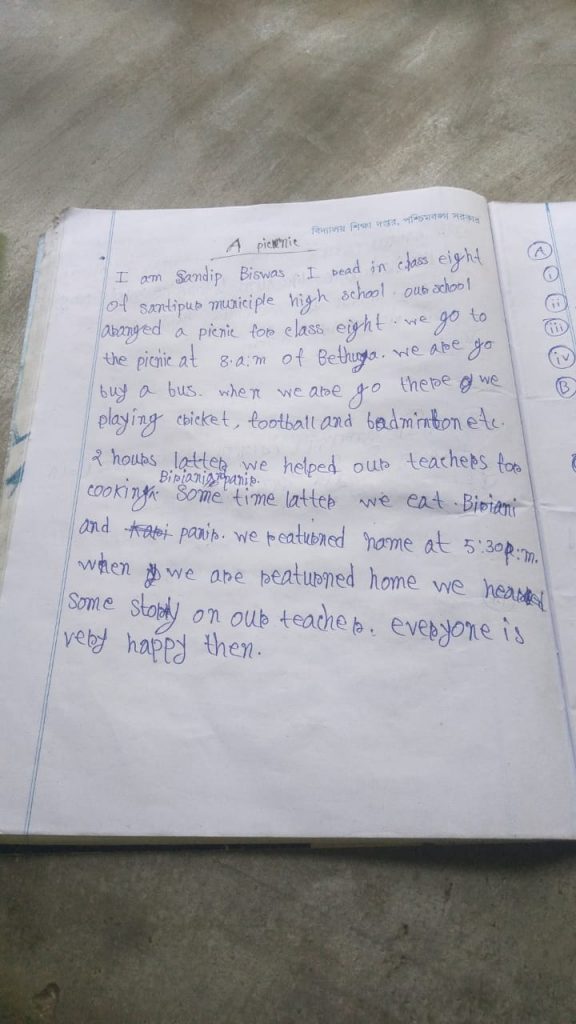 বিদ্যালয় শিক্ষা দপ্তর, পশ্চিমবঙ্গ সরকার
A picnic
I am Sandip Biswas. I read in class eight
of santipur municiple high school. our school
aranged a picnic for class eight. we go to
the picnic at 8.a:m of Bethuga. we are go
buy a bus. when we are go there we
playing cricket, football and badminton etc.
2 hours latter we helped our teachers for
Biriani panir.
cooking. Some time latter we eat. Biriani
and panir. we reaturned home at 5:30p:m.
when we are reaturned home we heard
some story on our teacher. everyone is
very happy then.
A
i
ii
iii
iv
B